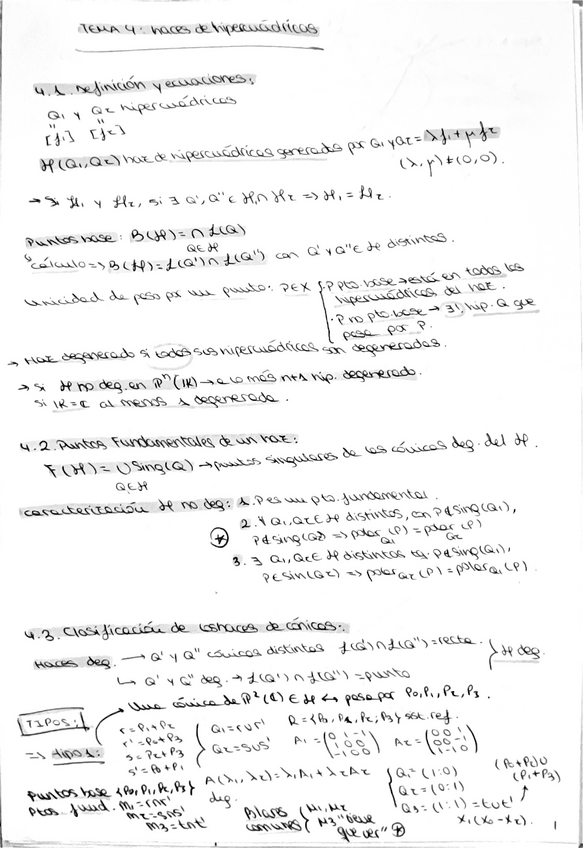 TEMA 4: haces de hipercuádricas
4.1. Definición y ecuaciones:
Q₁ y Q₂ hipercuádricas
[f₁] [f₂]
H(Q₁,Q₂) haz de hipercuádricas generados por Q₁ y Q₂ = λf₁ + μf₂
(λ,μ) ≠ (0,0).
→ Si H₁ y H₂, si ∃ Q', Q'' ∈ H₁∩H₂ => H₁ = H₂.
Puntos base: B(H) = ∩ L(Q)
Q∈H
cálculo => B(H) = L(Q') ∩ L(Q'') con Q' y Q'' ∈ H distintos.
Unicidad de paso por un punto: P∈X { · P pto. base → está en todos los
hipercuádricas del haz.
· P no pto. base → ∃! hip. Q que
pasa por P.
→ Haz degenerado si todos sus hipercuádricas son degeneradas.
→ si H no deg. en Pⁿ(IK) → a lo más n+1 hip. degenerado.
si IK = C al menos 1 degenerada.
4.2. Puntos Fundamentales de un haz:
F(H) = ∪ Sing(Q) → puntos singulares de las cónicas deg. del H.
Q∈H
caracterización H no deg: 1. P es un pto. fundamental.
2. ∀ Q₁, Q₂ ∈ H distintos, con P∉Sing(Q₁),
P∉Sing(Q₂) => polar Q₁ (P) = polar Q₂ (P)
3. ∃ Q₁, Q₂ ∈ H distintos tq. P∉Sing(Q₁),
P∈Sin(Q₂) => polar Q₂ (P) = polar Q₁ (P).
4.3. Clasificación de los haces de cónicas:
Haces deg. → Q' y Q'' cónicas distintos L(Q') ∩ L(Q'') = recta. } H deg.
↳ Q' y Q'' deg. → L(Q') ∩ L(Q'') = punto
Una cónica de P²(C) ∈ H ↔ pasa por P₀, P₁, P₂, P₃.
TIPOS:
=> tipo 1:
r = P₁+P₂
r' = P₀+P₃
s = P₂+P₃
s' = P₀+P₁
Q₁ = r∪r'
Q₂ = s∪s'
R = {P₀, P₁, P₂; P₃} sist. ref.
A₁ = (0 1 -1 / 1 0 0 / -1 0 0) A₂ = (0 0 1 / 0 0 -1 / 1 -1 0)
Puntos base {P₀, P₁, P₂, P₃} A(λ₁, λ₂) = λ₁A₁ + λ₂A₂
deg. { Q₁ = (1:0)
Q₂ = (0:1)
Q₃ = (1:1) = t∪t'
(P₀+P₂)∪
(P₁+P₃)
x₁(x₀-x₂).
Ptos. fund. M₁ = r∩r'
M₂ = s∩s'
M₃ = t∩t'
comunes { M₁, M₂
M₃ "tiene
que ver"
1